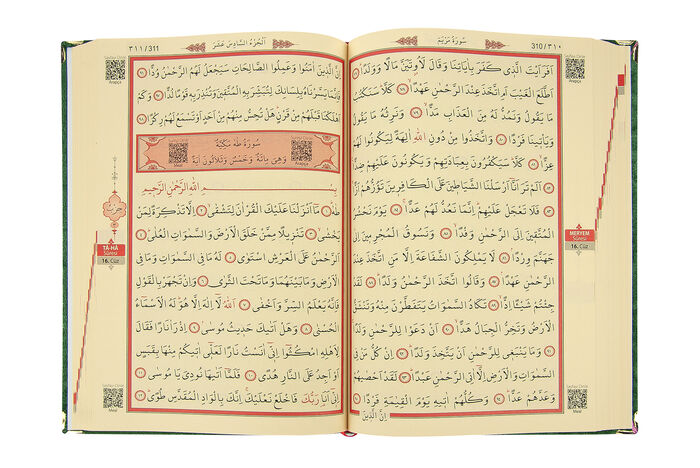 310/٣١٠
سُورَةُ مَرْيَمَ
اَفَرَاَيْتَ الَّذ۪ي كَفَرَ بِاٰيَاتِنَا وَقَالَ لَاُو۫تَيَنَّ مَالًا وَوَلَدًاۜ ﴿٧٧﴾
اَطَّلَعَ الْغَيْبَ اَمِ اتَّخَذَ عِنْدَ الرَّحْمٰنِ عَهْدًاۙ ﴿٧٨﴾ كَلَّاۜ سَنَكْتُبُ
مَا يَقُولُ وَنَمُدُّ لَهُ مِنَ الْعَذَابِ مَدًّاۙ ﴿٧٩﴾ وَنَرِثُهُ مَا يَقُولُ
وَيَأْت۪ينَا فَرْدًا ﴿٨٠﴾ وَاتَّخَذُوا مِنْ دُونِ اللّٰهِ اٰلِهَةً لِيَكُونُوا لَهُمْ
عِزًّاۙ ﴿٨١﴾ كَلَّاۜ سَيَكْفُرُونَ بِعِبَادَتِهِمْ وَيَكُونُونَ عَلَيْهِمْ ضِدًّا
﴿٨٢﴾ اَلَمْ تَرَ اَنَّٓا اَرْسَلْنَا الشَّيَاط۪ينَ عَلَى الْكَافِر۪ينَ تَؤُزُّهُمْ اَزًّاۙ
﴿٨٣﴾ فَلَا تَعْجَلْ عَلَيْهِمْۜ اِنَّمَا نَعُدُّ لَهُمْ عَدًّاۚ ﴿٨٤﴾ يَوْمَ نَحْشُرُ
الْمُتَّق۪ينَ اِلَى الرَّحْمٰنِ وَفْدًاۙ ﴿٨٥﴾ وَنَسُوقُ الْمُجْرِم۪ينَ اِلٰى
جَهَنَّمَ وِرْدًاۢ ﴿٨٦﴾ لَا يَمْلِكُونَ الشَّفَاعَةَ اِلَّا مَنِ اتَّخَذَ عِنْدَ
الرَّحْمٰنِ عَهْدًاۢ ﴿٨٧﴾ وَقَالُوا اتَّخَذَ الرَّحْمٰنُ وَلَدًاۜ ﴿٨٨﴾ لَقَدْ
جِئْتُمْ شَيْـًٔا اِدًّاۙ ﴿٨٩﴾ تَكَادُ السَّمٰوَاتُ يَتَفَطَّرْنَ مِنْهُ وَتَنْشَقُّ
الْاَرْضُ وَتَخِرُّ الْجِبَالُ هَدًّاۙ ﴿٩٠﴾ اَنْ دَعَوْا لِلرَّحْمٰنِ وَلَدًاۚ
﴿٩١﴾ وَمَا يَنْبَغ۪ي لِلرَّحْمٰنِ اَنْ يَتَّخِذَ وَلَدًاۜ ﴿٩٢﴾ اِنْ كُلُّ مَنْ فِي
السَّمٰوَاتِ وَالْاَرْضِ اِلَّٓا اٰتِي الرَّحْمٰنِ عَبْدًاۜ ﴿٩٣﴾ لَقَدْ اَحْصٰيهُمْ
وَعَدَّهُمْ عَدًّاۜ ﴿٩٤﴾ وَكُلُّهُمْ اٰت۪يهِ يَوْمَ الْقِيٰمَةِ فَرْدًا ﴿٩٥﴾
اِنَّ الَّذ۪ينَ
Arapça
MERYEM
Sûresi
16. Cüz
Meal
اَلْجُزْءُ السَّادِسُ عَشَرَ
٣١١/311
اِنَّ الَّذ۪ينَ اٰمَنُوا وَعَمِلُوا الصَّالِحَاتِ سَيَجْعَلُ لَهُمُ الرَّحْمٰنُ وُدًّا ﴿٩٦﴾
فَاِنَّمَا يَسَّرْنَاهُ بِلِسَانِكَ لِتُبَشِّرَ بِهِ الْمُتَّق۪ينَ وَتُنْذِرَ بِه۪ قَوْمًا لُدًّا ﴿٩٧﴾ وَكَمْ
اَهْلَكْنَا قَبْلَهُمْ مِنْ قَرْنٍۜ هَلْ تُحِسُّ مِنْهُمْ مِنْ اَحَدٍ اَوْ تَسْمَعُ لَهُمْ رِكْزًا ﴿٩٨﴾
سُورَةُ طٰهٰ مَكِّيَّةٌ
وَهِيَ مِائَةٌ وَخَمْسٌ وَثَلَاثُونَ اٰيَةً
بِسْمِ اللّٰهِ الرَّحْمٰنِ الرَّح۪يمِ
طٰهٰۜ ﴿١﴾ مَٓا اَنْزَلْنَا عَلَيْكَ الْقُرْاٰنَ لِتَشْقٰىۙ ﴿٢﴾ اِلَّا تَذْكِرَةً لِمَنْ
يَخْشٰىۙ ﴿٣﴾ تَنْز۪يلًا مِمَّنْ خَلَقَ الْاَرْضَ وَالسَّمٰوَاتِ الْعُلٰىۜ ﴿٤﴾
اَلرَّحْمٰنُ عَلَى الْعَرْشِ اسْتَوٰى ﴿٥﴾ لَهُ مَا فِي السَّمٰوَاتِ وَمَا فِي
الْاَرْضِ وَمَا بَيْنَهُمَا وَمَا تَحْتَ الثَّرٰى ﴿٦﴾ وَاِنْ تَجْهَرْ بِالْقَوْلِ
فَاِنَّهُ يَعْلَمُ السِّرَّ وَاَخْفٰى ﴿٧﴾ اَللّٰهُ لَٓا اِلٰهَ اِلَّا هُوَۜ لَهُ الْاَسْمَٓاءُ
الْحُسْنٰى ﴿٨﴾ وَهَلْ اَتٰيكَ حَد۪يثُ مُوسٰىۢ ﴿٩﴾ اِذْ رَاٰ نَارًا فَقَالَ
لِاَهْلِهِ امْكُثُٓوا اِنّ۪ٓي اٰنَسْتُ نَارًا لَعَلّ۪ٓي اٰت۪يكُمْ مِنْهَا بِقَبَسٍ
اَوْ اَجِدُ عَلَى النَّارِ هُدًى ﴿١٠﴾ فَلَمَّٓا اَتٰيهَا نُودِيَ يَا مُوسٰىۜ ﴿١١﴾
اِنّ۪ٓي اَنَا رَبُّكَ فَاخْلَعْ نَعْلَيْكَۚ اِنَّكَ بِالْوَادِ الْمُقَدَّسِ طُوًىۜ ﴿١٢﴾
Arapça
TÂ-HÂ
Sûresi
16. Cüz
Meal